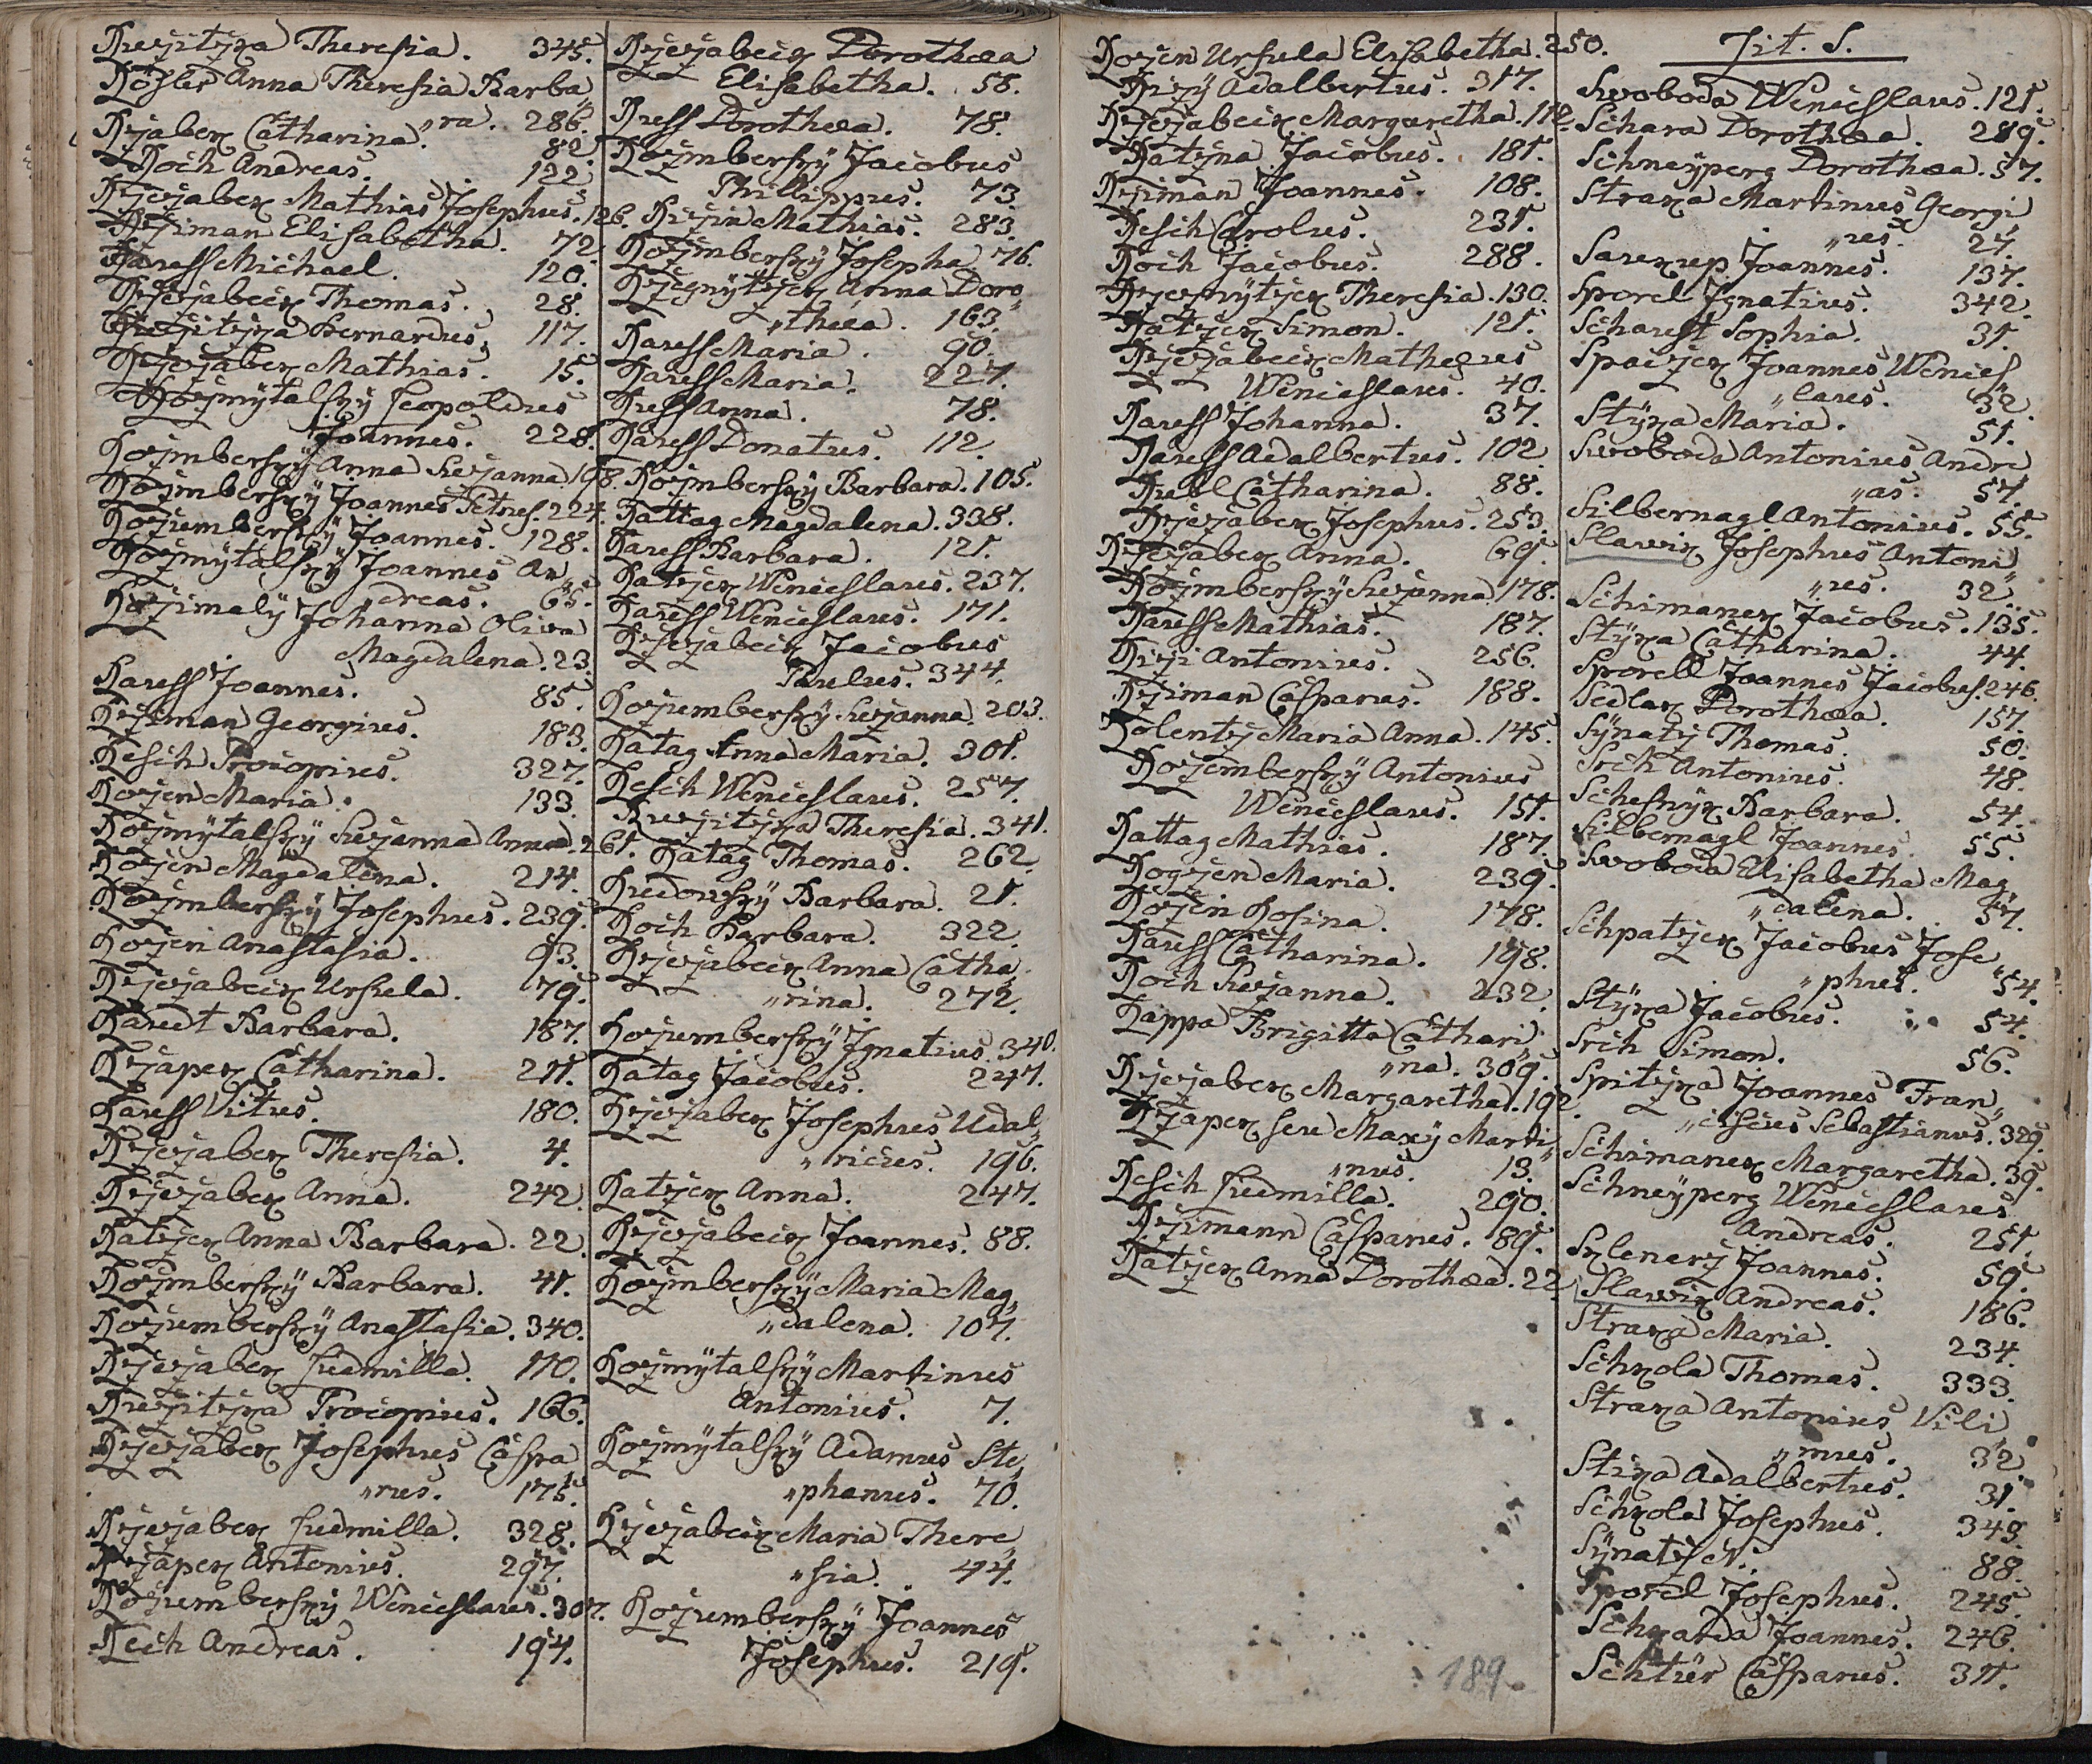 Ruzitzka Theresia. 345.
Rösler Anna Theresia Barba„
„ra. 286.
Rzabek Catharina. 82.
Roch Andreas. 122.
Rzezabek Mathias Josephus. 126.
Rziman Elisabetha. 72.
Raress Michael. 120.
Rzezabeik Thomas. 28.
Ruzitzka Bernardus. 117.
Rzezabek Mathias. 15.
Rozmÿtalskÿ Leopoldus
Joannes. 228.
Rozmberskÿ Anna Suzanna. 198.
Rozmberskÿ Joannes Petrus. 224.
Rozumberskÿ Joannes. 128.
Rozmÿtalskÿ Joannes An„
„dreas. 65.
Rozimalÿ Johanna Oliva
Magdalena. 23.
Raress Joannes. 85.
Rziman Georgius. 183.
Resch Procopius. 327.
Rozen Maria. 133.
Rozmÿtalskÿ Suzanna Anna. 261.
Rozen Magdalena. 214.
Rozmberskÿ Josephus. 239.
Rozen Anastasia. 93.
Rzezabeik Ursula. 79.
Raredt Barbara. 187.
Rzapek Catharina. 211.
Raress Vitus. 180.
Rzezabek Theresia. 4.
Rzezabek Anna. 242.
Ratzek Anna Barbara. 22.
Rozmberskÿ Barbara. 41.
Rozumberskÿ Anastasia. 340.
Rzezabek Ludmilla. 170.
Ruzitzka Procopius. 166.
Rzezabek Josephus Caspa
„rus. 175.
Rzezabek Ludmilla. 328.
Rzapek Antonius. 297.
Rozumberskÿ Wenceslaus. 307.
Reich Andreas. 194.
Rzezabeik Dorothæa
Elisabetha. 58.
Russ Dorothæa. 78.
Rozmberskÿ Jacobus
Phillippus. 73.
Ruzin Mathias. 283.
Rozmberskÿ Josepha. 76.
Rzeznÿtzek Anna Doro„
„thea. 163.
Raress Maria. 90.
Raress Maria. 227.
Russ Anna. 78.
Raress Donatus. 112.
Rozmberskÿ Barbara. 105.
Rattag Magdalena. 338.
Raress Barbara. 121.
Ratzek Wenceslaus. 237.
Raress Wenceslaus. 171.
Rzezabeik Jacobus
Paulus. 344.
Rozumberskÿ Suzanna. 203.
Ratag Anna Maria. 301.
Resch Wenceslaus. 257.
Ruzitzka Theresia. 341.
Ratag Thomas. 262.
Rudowskÿ Barbara. 21.
Roch Barbara. 322.
Rzezabeik Anna Catha„
„rina. 272.
Rozumberskÿ Ignatius. 340.
Ratag Jacobus. 247.
Rzezabek Josephus Udal„
„ricus. 196.
Ratzek Anna. 247.
Rzezabeik Joannes. 88.
Rozmberskÿ Maria Mag„
„dalena. 107.
Rozmÿtalskÿ Martinus
Antonius. 7.
Rozmÿtalskÿ Adamus Ste„
„phanus. 70.
Rzezabeik Maria There„
„sia. 44.
Rozumberskÿ Joannes
Josephus. 219.
Rozen Ursula Elisabetha. 250.
Rizÿ Adalbertus. 317.
Rzezabeik Margaretha. 112.
Ratzna Jacobus. 181.
Rziman Joannes. 108.
Resch Carolus. 231.
Roch Jacobus. 288.
Rzeznÿtzek Theresia. 130.
Ratzek Simon. 121.
Rzezabeik Mathæus
Wenceslaus. 40.
Raress Johanna. 37.
Raress Adalbertus. 102.
Rubl Catharina. 88.
Rzezabek Josephus. 253.
Rzezabek Anna. 69.
Rozmberskÿ Suzanna. 178.
Raress Mathias. 187.
Rizi Antonius. 256.
Rziman Casparus. 188.
Rolentz Maria Anna. 145.
Rozemberskÿ Antonius
Wenceslaus. 151.
Rattag Mathias. 187.
Rogzen Maria. 239.
Rozen Rosina. 178.
Raress Catharina. 198.
Roch Suzanna. 232.
Rappa Brigitta Cathari„
„na. 309.
Rzezabek Margaretha. 192.
Rzapek seu Maxÿ Marti„
„nus. 13.
Resch Ludmilla. 290.
Rzimann Casparus. 89.
Ratzek Anna Dorothæa. 22.
189.
Lit. S.
Swoboda Wenceslaus. 121.
Schara Dorothæa. 289.
Schneÿperg Dorothæa. 57.
Straka Martinus Georgi„
„us. 27.
Saukup Joannes. 137.
Sporel Ignatius. 342.
Scharest Sophia. 31.
Spaczek Joannes Wences„
„laus. 32.
Stÿka Maria. 51.
Swoboda Antonius Andre„
„as. 57.
Silbernagl Antonius. 55.
Slawik Josephus Antoni„
„us. 32.
Schimanek Jacobus. 135.
Stÿka Catharina. 44.
Sporell Joannes Jacobus. 246.
Sedlak Dorothæa. 157.
Sÿnatz Thomas. 50.
Srch Antonius. 48.
Scheskÿk Barbara. 54.
Silbernagl Joannes. 55.
Swoboda Elisabetha Mag„
„dalena. 57.
Schpatzek Jacobus Jose„
„phus. 54.
Stÿka Jacobus. 54.
Srch Simon. 56.
Spitzka Joannes Fran„
„ciscus Sebastianus. 329.
Schimanek Margaretha. 39.
Schneÿperg Wenceslaus
Andreas. 251.
Sklenarz Joannes. 59.
Slawik Andreas. 186.
Straka Maria. 234.
Schkola Thomas. 333.
Straka Antonius Vili„
„mus. 32.
Stika Adalbertus. 31.
Schkola Josephus. 349.
Sÿnatz N. 88.
Sporel Josephus. 245.
Schkarda Joannes. 246.
Schtür Casparus. 311.